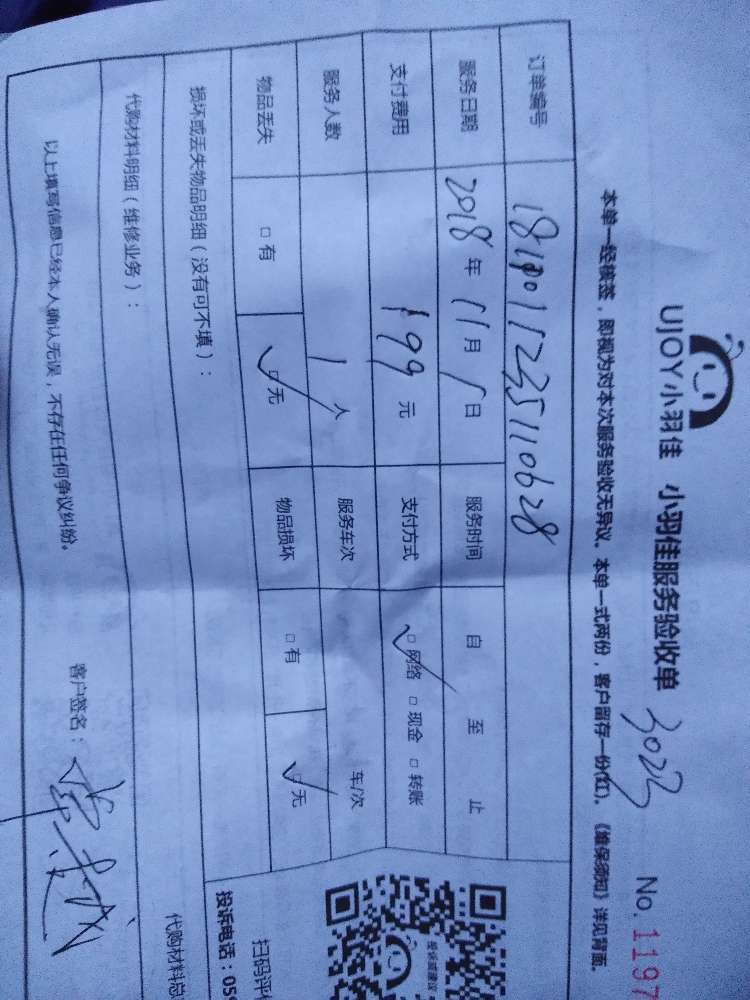 UJOY小羽佳 小羽佳服务验收单
3022
No.1197
本单一经核签，即视为对本次服务验收无异议。本单一式两份，客户留存一份(红)。《维保须知》详见背面。
订单编号
服务日期 2018年11月1日 服务时间 自 至 止
支付费用 199元 支付方式 □网络 □现金 □转账
服务人数 1人 服务车次 车/次
物品丢失 □有 □无 物品损坏 □有 □无
损坏或丢失物品明细（没有可不填）：
代购材料明细（维修业务）：
代购材料总
以上填写信息已经本人确认无误，不存在任何争议纠纷。
客户签名：
扫码评
投诉电话：059